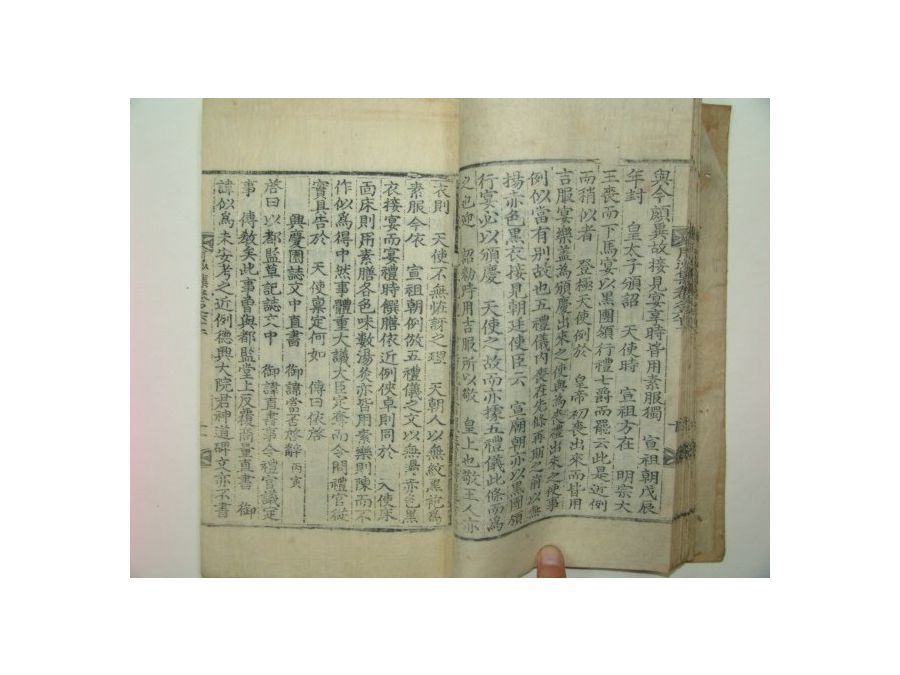 與今頗異故接見宴享時皆用素服獨 宣祖朝戊辰
年封 皇太子頒詔 天使時 宣祖方在 明宗大
王喪而下馬宴以黑團領行禮七爵而罷云此是近例
而稍似者 登極天使例於 皇帝初喪出來而皆用
吉服宴樂蓋爲頒慶出來之使與爲喪禮出來之使事
例似當有別故也五禮儀內喪在先條再期之前以無
揚赤色黑衣接見朝廷使臣云 宣廟朝亦以黑團領
行宴必以頒慶 天使之故而亦據五禮儀此條而爲
之也迎 詔勑時用吉服所以敬 皇上也敬王人亦
衣則 天使不無怪訝之理 天朝人以無紋黑袍爲
素服今依 宣祖朝例倣五禮儀之文以無揚赤色黑
衣接宴而宴禮時饌膳依近例俠卓則同於 入使床
面床則用素膳各色味數湯炙亦皆用素樂則陳而不
作似爲得中然事體重大議大臣定奪而令該禮官從
實具告於 天使稟定何如 傳曰依啓
興慶園誌文中直書 御諱當否啓辭 丙寅
啓曰以都監草記誌文中 御諱直書事令禮官議定
事 傳敎矣此事曾與都監堂上反覆商量直書 御
諱似爲未安考之近例德興大院君神道碑文亦不書